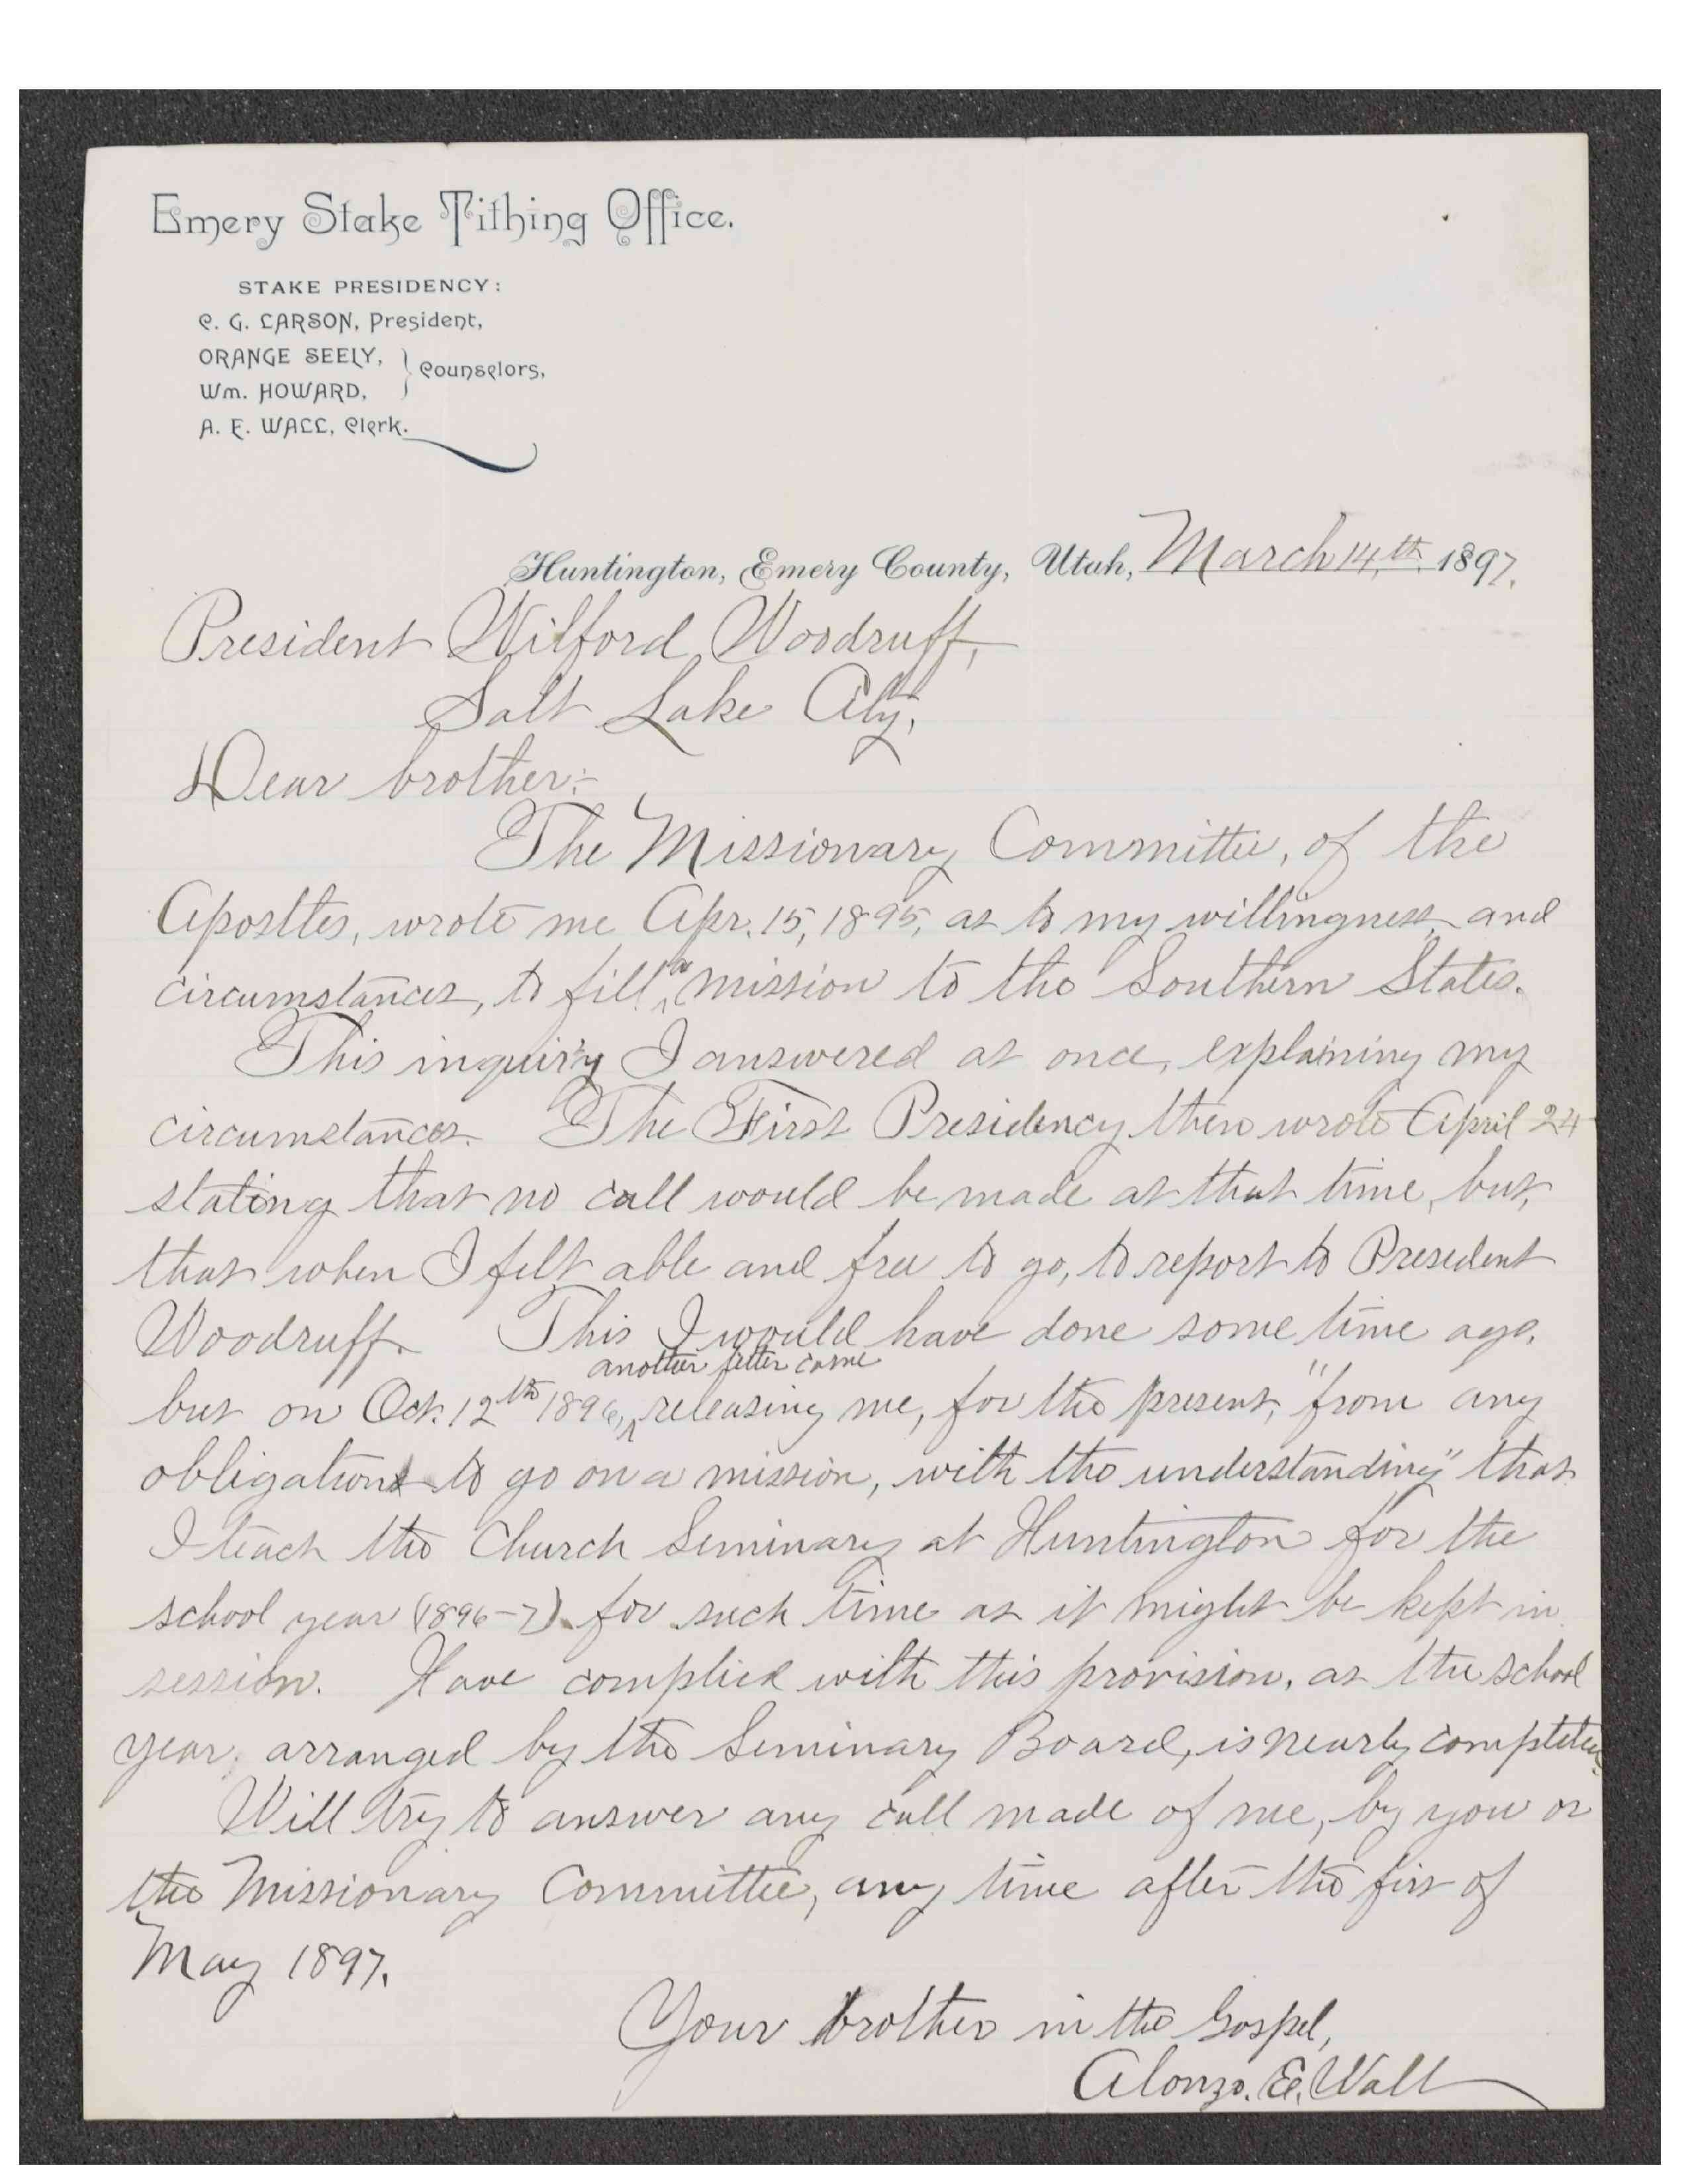 Emery Stake Tithing Office.
STAKE PRESIDENCY:
C. G. LARSON, President,
ORANGE SEELY,
Wm. HOWARD,
Counselors,
A. E. WALL, Clerk.
Huntington, Emery County, Utah, March 14th 1897.
President Wilford Woodruff,
Salt Lake City,
Dear brother:-
The Missionary Committee, of the
Apostles, wrote me Apr. 15, 1895, as to my willingness, and
circumstances, to fill a mission to the Southern States.
This inquiry I answered at once, explaining my
circumstances. The First Presidency then wrote April 24
stating that no call would be made at that time, but,
that when I felt able and free to go, to report to President
Woodruff. This I would have done some time ago,
another letter came
but on Oct. 12th 1896, releasing me, for the present, "from any
obligations to go on a mission, with the understanding" that
I teach the Church Seminary at Huntington for the
school year (1896-7) for such time as it might be kept in
session. Have complied with this provision, as the school
year, arranged by the Seminary Board, is nearly completed.
Will try to answer any call made of me, by you or
the Missionary Committee, any time after the first of
May 1897.
Your brother in the Gospel,
Alonzo. E. Wall